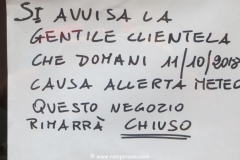 SI AVVISA LA
GENTILE CLIENTELA
CHE DOMANI 11/10/2018
CAUSA ALLERTA METEO
QUESTO NEGOZIO
RIMARRÀ CHIUSO